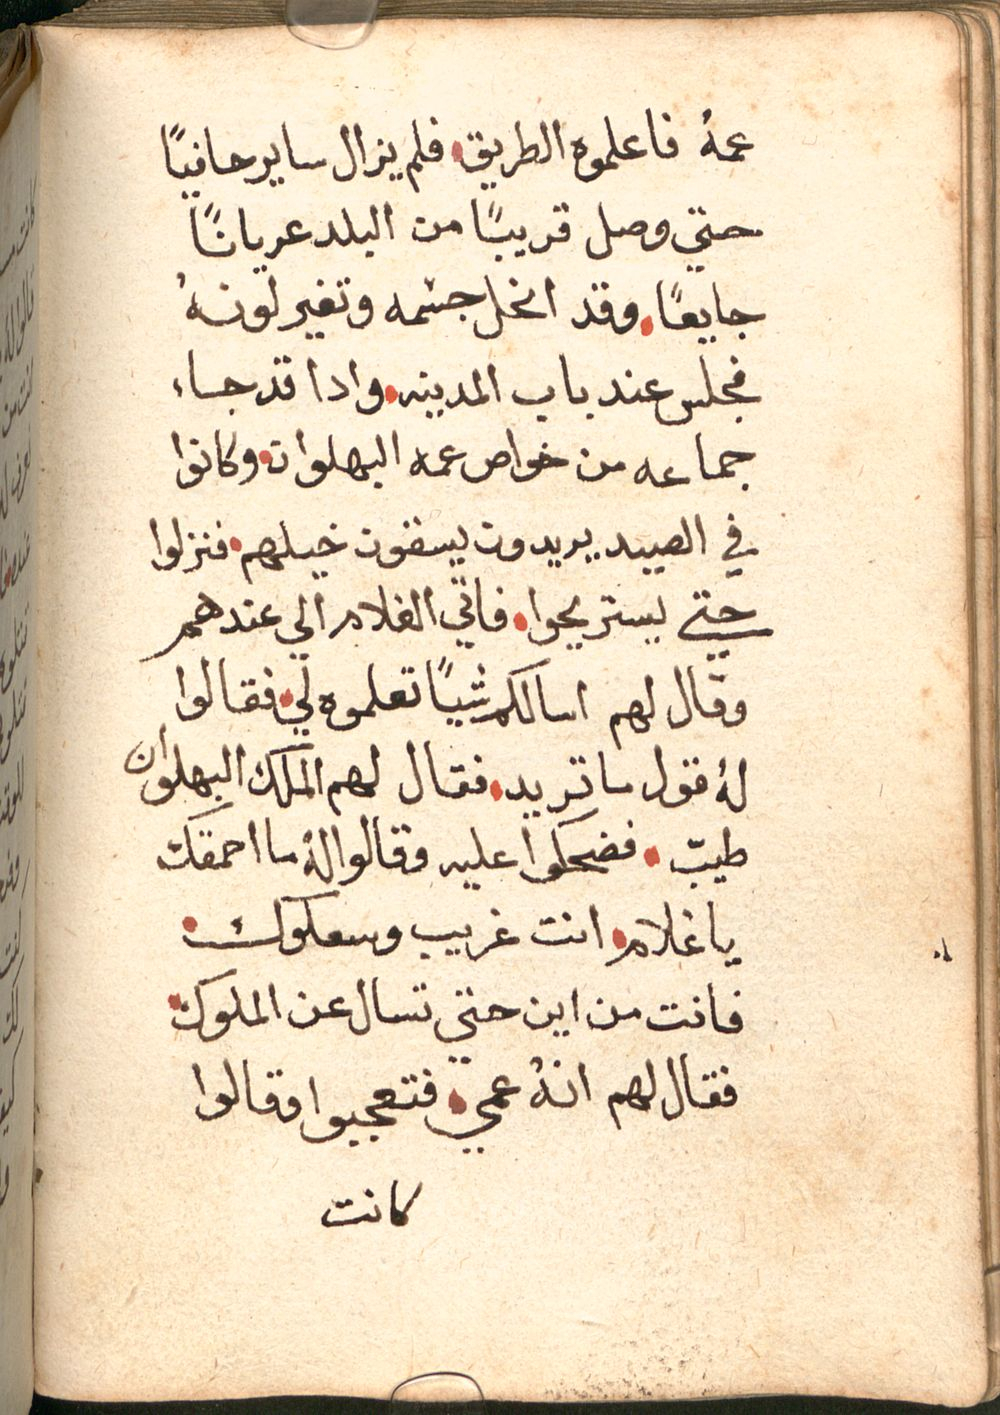 عمهُ فاعلموه الطريق. فلم يزال ساير حافيًا
حتي وصل قريبًا من البلد عريانًا
جايعًا. وقد انحل جسمه وتغير لونهُ
فجلس عند باب المدينه. وادا قد جاء
جماعه من خواص عمه البهلوان. وكانوا
في الصيد يريدون يسقون خيلهم. فنزلوا
حتي يستريحوا. فاتي الغلام الي عندهم
وقال لهم اسالكم شيًا تعلموه لي. فقالوا
لهُ قول ما تريد. فقال لهم الملك البهلوان
طيبّ. فضحكوا عليه وقالوا لهُ ما احمقك
يا غلام. انت غريب وسعكوك.
فانت من اين حتي تسال عن الملوك.
فقال لهم انهُ عمي. فتعجبوا وقالوا
كانت